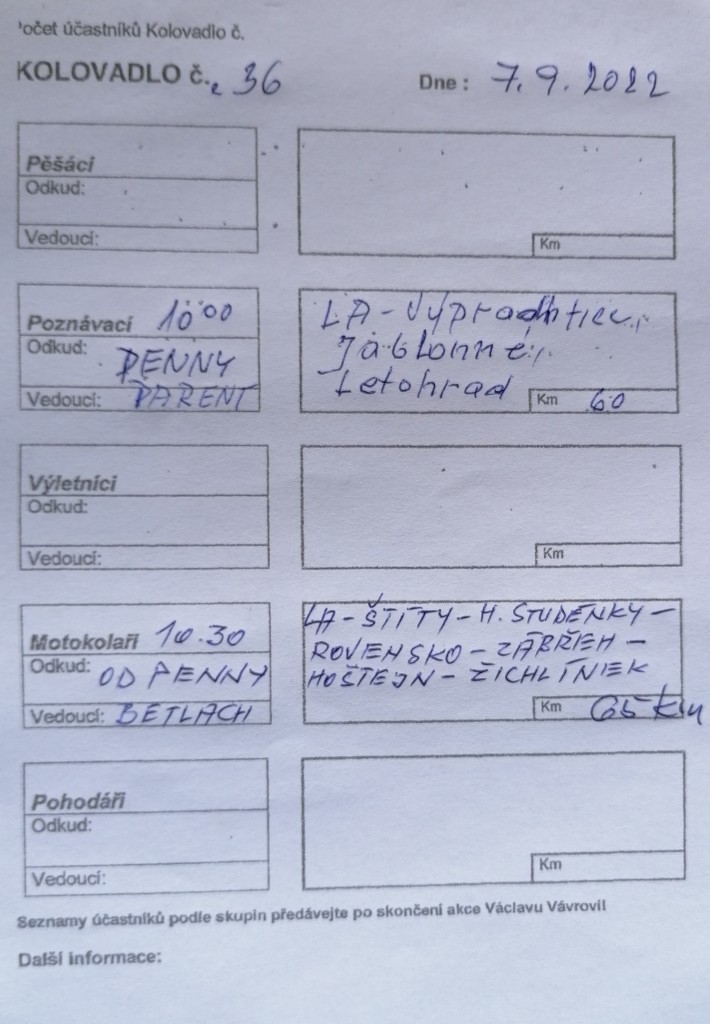 očet účastníků Kolovadlo č.
KOLOVADLO č. 36 Dne: 7.9.2022
Pěšáci
Odkud:
Vedoucí:
Km
Poznávací 10 00
Odkud: PENNY
Vedoucí: PARENT
LA-Výprachtice,
Jablonné,
Letohrad
Km 60
Výletníci
Odkud:
Vedoucí:
Km
Motokolaři 10.30
Odkud: OD PENNY
Vedoucí: BETLACH
LA-ŠTÍTY-H. STUDÉNKY-
ROVENSKO-ZÁBŘEH-
HOŠTEJN-ŽICHLÍNEK
Km 65 km
Pohodáři
Odkud:
Vedoucí:
Km
Seznamy účastníků podle skupin předávejte po skončení akce Václavu Vávrovi!
Další informace: